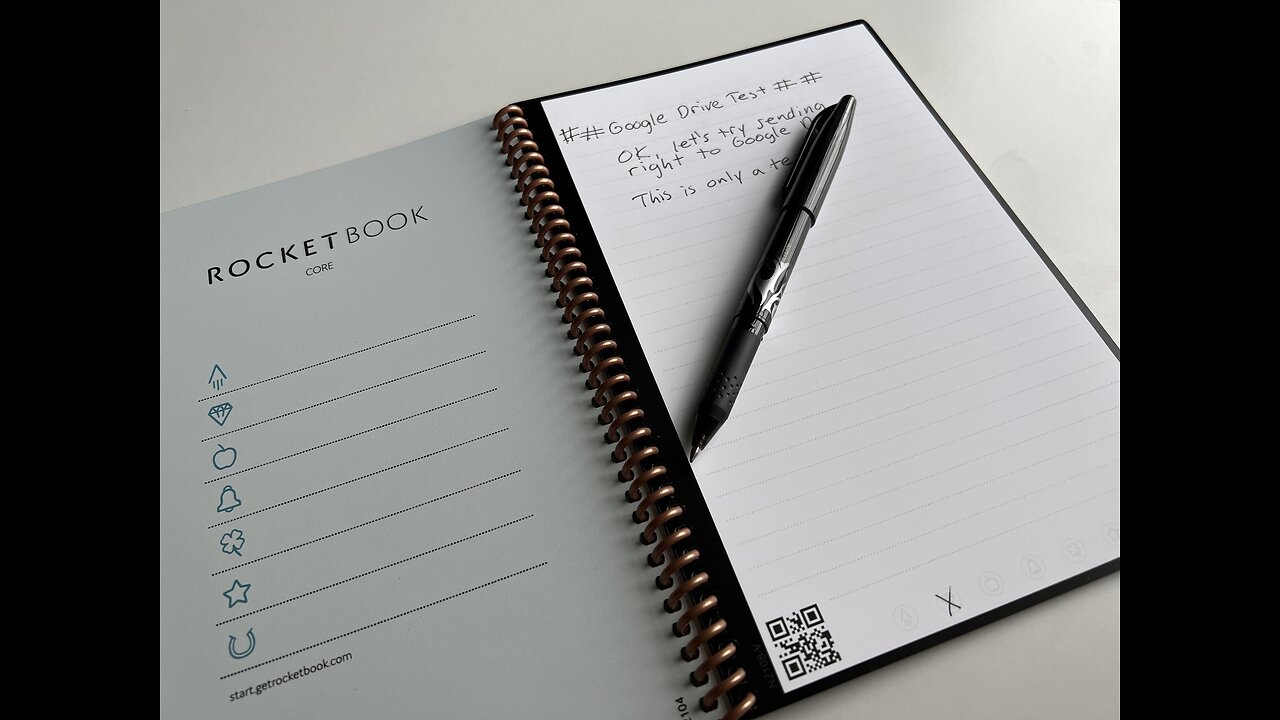 ROCKETBOOK
CORE
start.getrocketbook.com
## Google Drive Test ##
OK, let's try sending
right to Google
This is only a
X